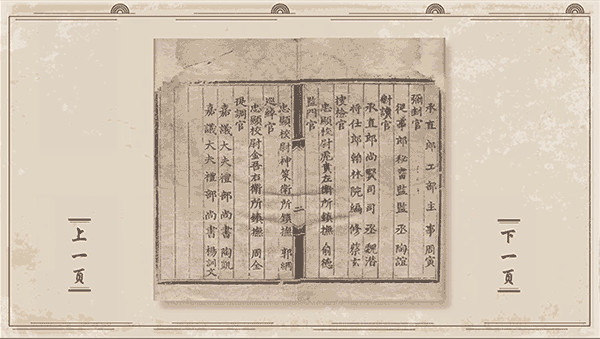 承直郎工部主事周寅
彌封官
從事郎秘書監監丞陶誼
對讀官
承直郎尚賢司司丞魏潛
將仕郎翰林院編修蔡玄
搜檢官
忠顯校尉虎賁左衛所鎮撫俞德
監門官
二
忠顯校尉神策衛所鎮撫郭綱
巡綽官
忠顯校尉金吾右衛所鎮撫周全
提調官
嘉議大夫禮部尚書陶凱
嘉議大夫禮部尚書楊訓文
上一頁
下一頁